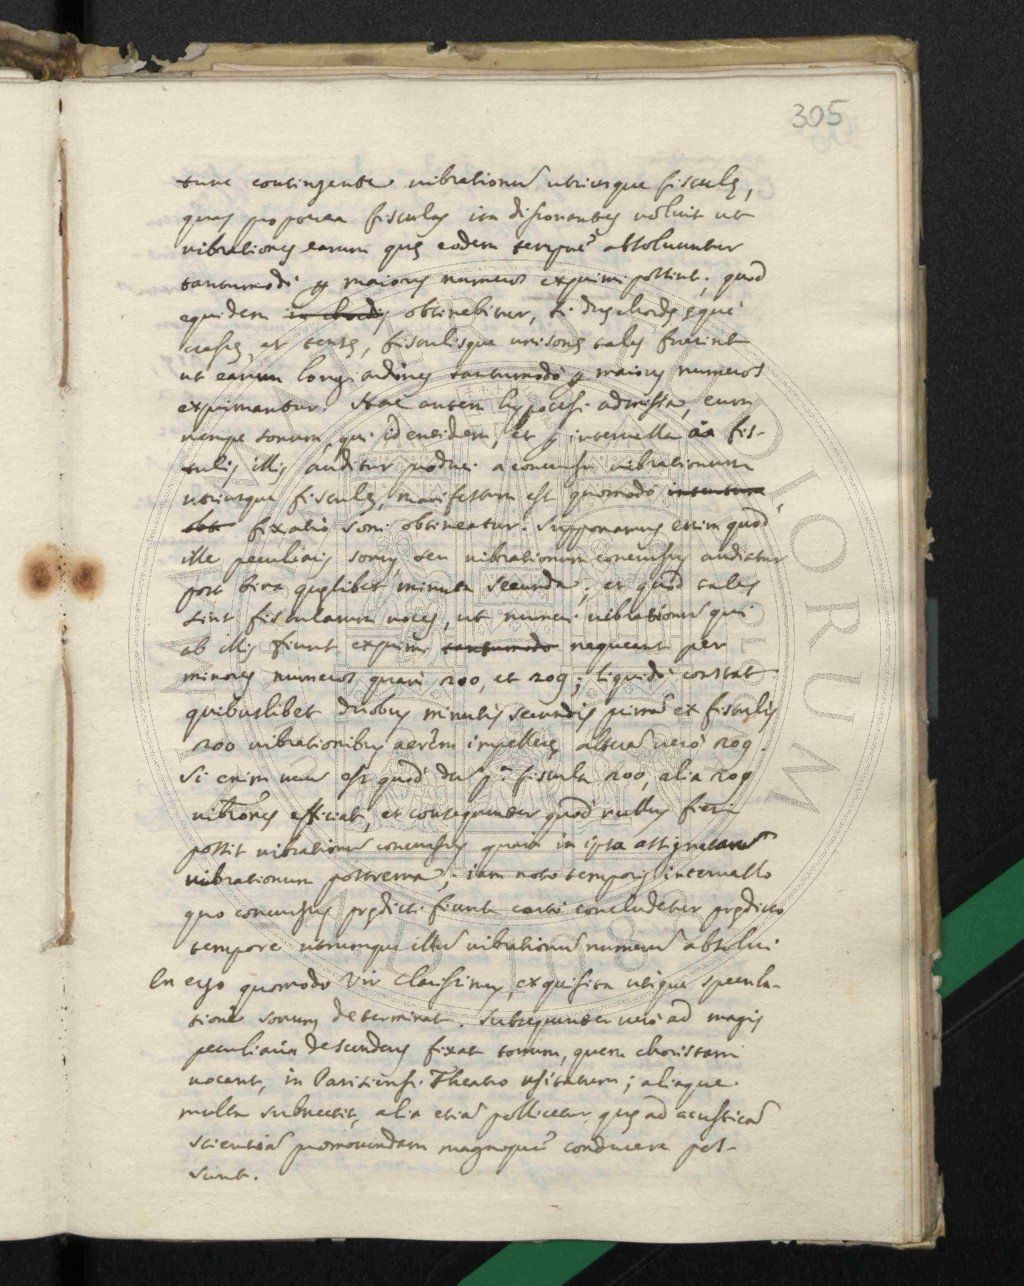 305
tunc contingente vibrationũ utriusque fistulę,
quas proponam fistulas ita dissonantes voluit ut
vibrationes earum quę eodem tempore absolvuntur
tantummodò maiores numeros exprimi possint; quod
equidem in chordis obtinebitur, si duę chordę ęque
crassę, et tensę, fistulisque unisonę tales fuerint
ut earum longitudines tantummodò maiores numeros
exprimantur. Hac autem hypothesi admissa, cum
nempe sonum, qui identidem, et intervalla a fis-
tulis illis auditur produci a concursu vibrationum
utriusque fistulę, manifestum est quomodò
fixatio soni obtineatur. Supponamus enim quod
ille peculiaris sonus seu vibrationum concursus audiatur
post quęlibet minuta secunda, et quod tales
sint fistularum voces, ut numeri vibrationũ qui
ab illis fiunt exprimi tantummodo nequeant per
minores numeros quam 200, et 209; liquidò constat
quibuslibet duobus minutis secundis primã ex fistulis
200 vibrationibus aerem impellere, alterã verò 209.
Si enim verũ est quod dũ pa fistula 200, alia 209
vibrões efficiat, et consequenter quod nullus fieri
possit vibrationũ concursus quam in ipsa assignatarũ
vibrationum postrema, iam noto temporis intervallo
quo concursus prędicti fiunt certò concludetur prędicto
tempore utrumque illũ vibrationũ numerũ absolvi
En ergo quomodo Vir Clarissimus, exquisita utique specula-
tione sonum determinat. Subsequenter verò ad magis
peculiaria descendens fixat tonum, quem choristam
vocant, in Parisiensi Theatro usitatum; aliaque
multa subnectit, alia etiã pollicetur, quę ad acusticã
scientiã promovendam magnopere conducere pos-
sunt.